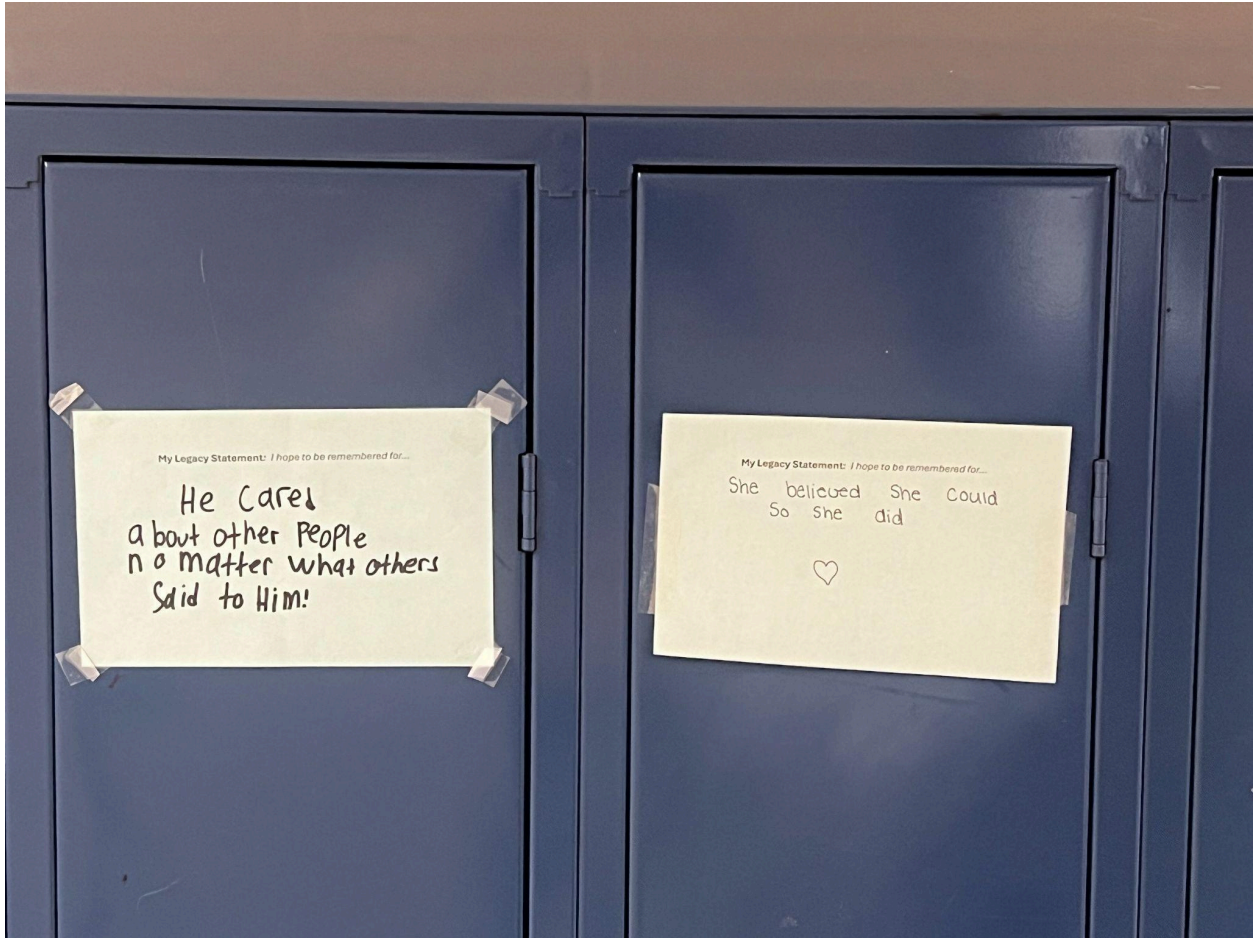 My Legacy Statement: I hope to be remembered for...
He Cared
about other People
no matter what others
Said to Him!
My Legacy Statement: I hope to be remembered for...
She believed She Could
So She did